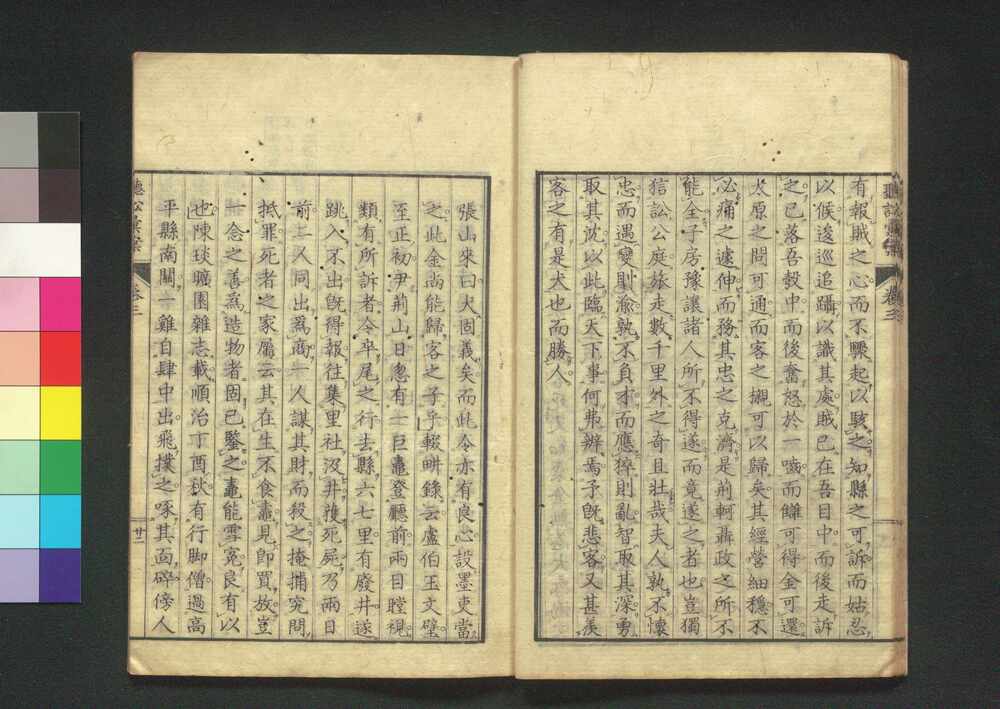 聽訟彙案 卷三
有報賊之心而不驟起以駭之知縣之可訴而姑忍
以候逡巡追躡以識其處賊已在吾目中而後走訴
之已落吾彀中而後奮怒於一嚙而讎可得金可還
太原之問可通而客之櫬可以歸矣其經營細穩不
必痛之遽伸而務其忠之克濟是荊軻聶政之所不
能全子房豫讓諸人所不得遂而竟遂之者也豈獨
狺訟公庭旅走數千里外之奇且壯哉夫人孰不懷
忠而遇變則渝孰不負才而應猝則亂智取其深勇
取其沈以此臨天下事何弗辨焉予既悲客又甚羨
客之有是犬也而勝人
張山來曰犬固義矣而此令亦有良心設墨吏當
之此金尚能歸客之子乎輟畊錄云盧伯玉文璧
至正初尹荊山日忽有一巨鼃登廳前兩目瞠視
類有所訴者令卒尾之行去縣六七里有廢井遂
跳入不出既得報往集里社汲井獲死屍乃兩日
前二人同出為商一人謀其財而殺之掩捕究問
抵罪死者之家屬云其在生不食鼃見即買放豈
一念之善為造物者固已鑒之鼃能雪冤良有以
也陳琰曠園雜志載順治丁酉秋有行脚僧過高
平縣南關一雞自肆中出飛撲之啄其面碎傍人
聽訟彙案 卷三 廿二